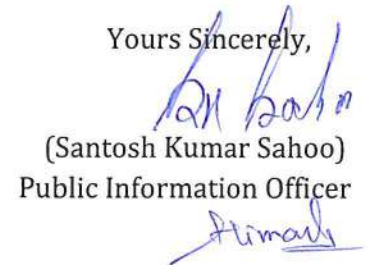 Yours Sincerely,
(Santosh Kumar Sahoo)
Public Information Officer